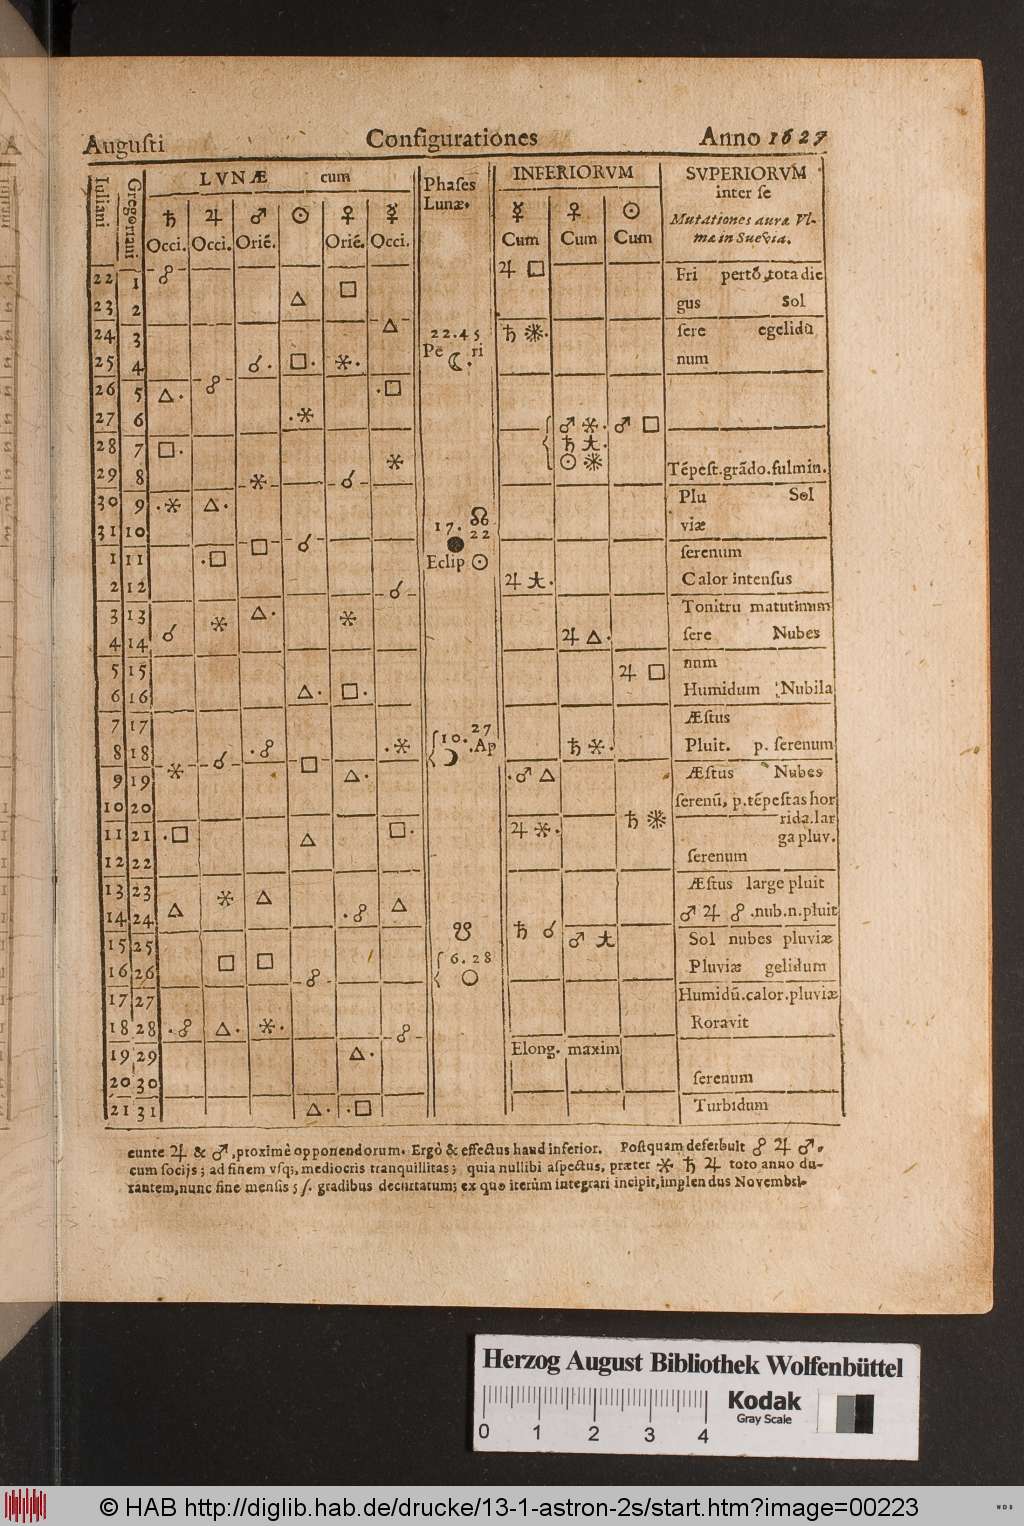 Augusti Configurationes Anno 1627
Iuliani Gregoriani LVNÆ cum Phases Lunæ. INFERIORVM SVPERIORVM
inter se
♄ ♃ ♂ ☉ ♀ ☿ ☿ ♀ ☉ Mutationes auræ Vl-
Occi. Occi. Oriē. Oriē. Occi. Cum Cum Cum mæ in Suevia.
22 1 ☍ ♃ □ Fri pertō, tota die
23 2 △ □ gus Sol
24 3 △ 22.45 ♄ ⚹. sere egelidū
25 4 ☌. □. ⚹. Pe ☾. ri num
26 5 △. ☍ .□
27 6 .⚹ ♂ ⚹. ♂ □
28 7 □. ⚹ ♄ .
29 8 ⚹ ☌ ☉ ⚹ Tēpest.grādo.fulmin.
30 9 .⚹ △. ☊ Plu Sol
31 10 ☌ 17. 22 viæ
1 11 .□ □ Eclip ☉ serenum
2 12 ☌ ♃ . Calor intensus
3 13 ⚹ △. ⚹ Tonitru matutinum
4 14 ☌ ♃ △. sere Nubes
5 15 ♃ □ num
6 16 △. □. Humidum Nubila
7 17 27 Æstus
8 18 ☌ .☍ □ .⚹ 10. .Ap ♄ ⚹. Pluit. p. serenum
9 19 ⚹ △. .♂ △ Æstus Nubes
10 20 ♄ ⚹ serenū, p.tēpestas hor
rida.lar
11 21 .□ △ □. ♃ ⚹. ga pluv.
12 22 serenum
13 23 ⚹ △ △ Æstus large pluit
14 24 △ .☍ ☋ ♄ ☌ ♂ ♃ ☍ .nub.n.pluit
15 25 □ □ ♂ Sol nubes pluviæ
16 26 ☍ 6.28 ○ Pluviæ gelidum
17 27 Humidū.calor.pluviæ
18 28 .☍ △. ⚹. ☍ Roravit
19 29 △. Elong. maxim
20 30 serenum
21 31 △. .□ Turbidum
eunte ♃ & ♂, proximè opponendorum. Ergò & effectus haud inferior. Postquam deferbuit ☍ ♃ ♂.
cum socijs; ad finem vsq;, mediocris tranquillitas; quia nullibi aspectus, præter ⚹ ♄ ♃ toto anno du-
rantem, nunc fine mensis 5 s. gradibus decurtatum; ex quo iterùm integrari incipit, implendus Novembri
Herzog August Bibliothek Wolfenbüttel
Kodak
Gray Scale
0 1 2 3 4
© HAB http://diglib.hab.de/drucke/13-1-astron-2s/start.htm?image=00223